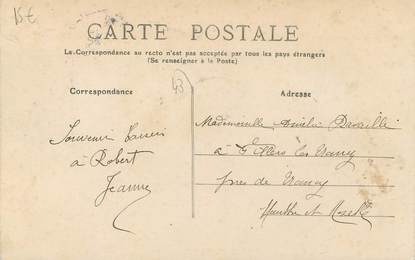 15€
CARTE POSTALE
La Correspondance au recto n'est pas acceptée par tous les pays étrangers
(Se renseigner à la Poste)
43
Correspondance
Adresse
Souvenir
à Robert
Jeanne
Mademoiselle
à les Nancy
près de Nancy
Meurthe et Moselle